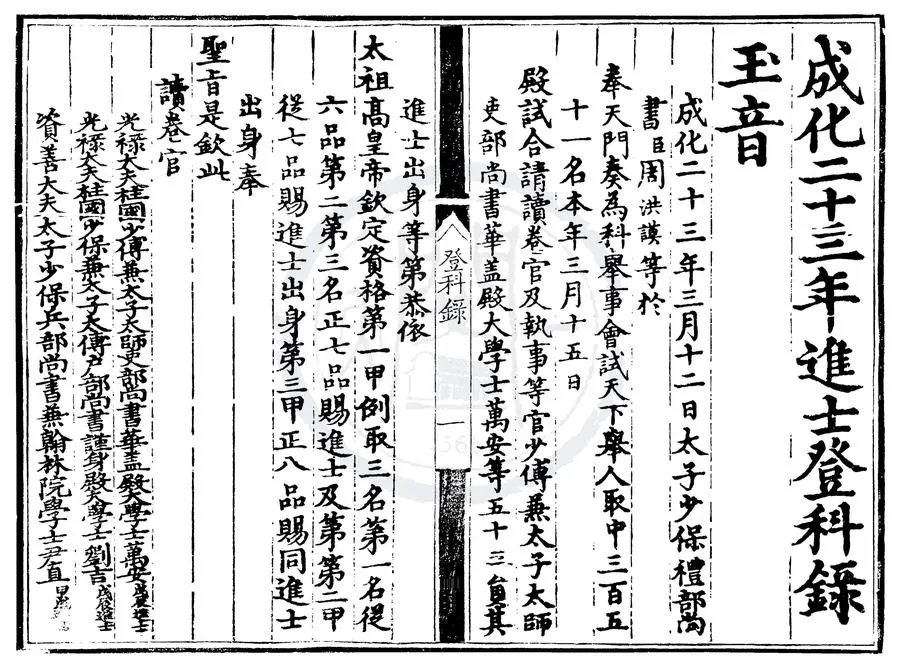 成化二十三年進士登科錄
玉音
成化二十三年三月十二日太子少保禮部尚
書臣周洪謨等於
奉天門奏為科舉事會試天下舉人取中三百五
十一名本年三月十五日
殿試合請讀卷官及執事等官少傅兼太子太師
吏部尚書華盖殿大學士萬安等五十三員其
登科錄 一
進士出身等第恭依
太祖高皇帝欽定資格第一甲例取三名第一名從
六品第二第三名正七品賜進士及第第二甲
從七品賜進士出身第三甲正八品賜同進士
出身奉
聖旨是欽此
讀卷官
光祿大夫柱國少傅兼太子太師吏部尚書華盖殿大學士萬安戊辰進士
光祿大夫柱國少保兼太子太傅戶部尚書謹身殿大學士劉吉戊辰進士
資善大夫太子少保兵部尚書兼翰林院學士尹直